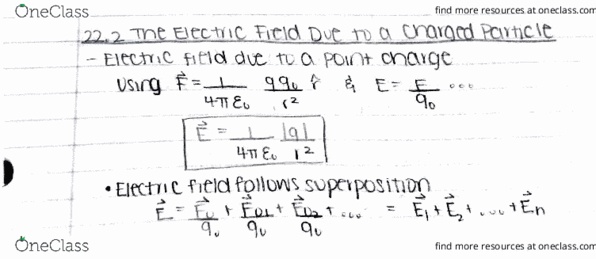 OneClass
find more resources at oneclass.com
22.2 The Electric Field Due to a Charged Particle
- Electric field due to a point charge
Using F⃗ = 1/4πε₀ qq₀/r² r̂ & E = F/q₀ ...
E⃗ = 1/4πε₀ |q|/r²
• Electric field follows superposition
E⃗ = /q₀ + F⃗₀₁/q₀ + F⃗₀₂/q₀ + ... = E⃗₁ + E⃗₂ + ... + E⃗n
OneClass
find more resources at oneclass.com